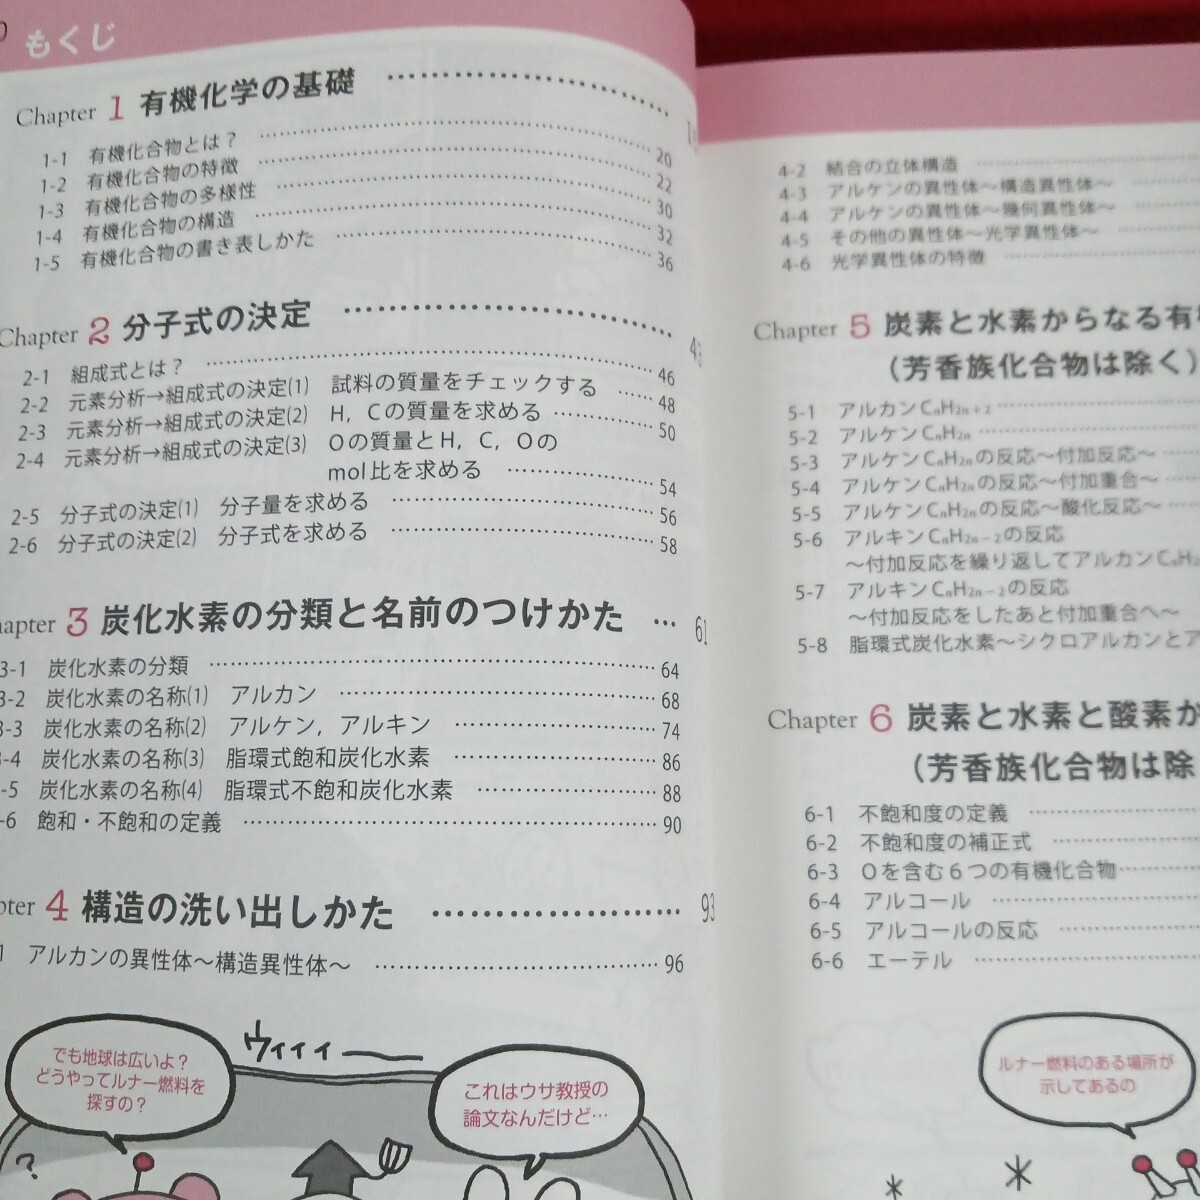 もくじ
Chapter 1 有機化学の基礎
1-1 有機化合物とは？ 20
1-2 有機化合物の特徴 22
1-3 有機化合物の多様性 30
1-4 有機化合物の構造 32
1-5 有機化合物の書き表しかた 36
Chapter 2 分子式の決定
2-1 組成式とは？ 46
2-2 元素分析→組成式の決定(1) 試料の質量をチェックする 48
2-3 元素分析→組成式の決定(2) H, Cの質量を求める 50
2-4 元素分析→組成式の決定(3) Oの質量とH, C, Oの
mol比を求める 54
2-5 分子式の決定(1) 分子量を求める 56
2-6 分子式の決定(2) 分子式を求める 58
apter 3 炭化水素の分類と名前のつけかた 61
3-1 炭化水素の分類 64
3-2 炭化水素の名称(1) アルカン 68
3-3 炭化水素の名称(2) アルケン, アルキン 74
-4 炭化水素の名称(3) 脂環式飽和炭化水素 86
-5 炭化水素の名称(4) 脂環式不飽和炭化水素 88
-6 飽和・不飽和の定義 90
pter 4 構造の洗い出しかた 93
1 アルカンの異性体～構造異性体～ 96
でも地球は広いよ？
どうやってルナー燃料を
探すの？
ウィィィ
これはウサ教授の
論文なんだけど…
?
4-2 結合の立体構造
4-3 アルケンの異性体～構造異性体～
4-4 アルケンの異性体～幾何異性体～
4-5 その他の異性体～光学異性体～
4-6 光学異性体の特徴
Chapter 5 炭素と水素からなる有
（芳香族化合物は除く）
5-1 アルカンCnH2n+2
5-2 アルケンCnH2n
5-3 アルケンCnH2nの反応～付加反応～
5-4 アルケンCnH2nの反応～付加重合～
5-5 アルケンCnH2nの反応～酸化反応～
5-6 アルキンCnH2n-2の反応
～付加反応を繰り返してアルカンCnH2
5-7 アルキンCnH2n-2の反応
～付加反応をしたあと付加重合へ～
5-8 脂環式炭化水素～シクロアルカンとア
Chapter 6 炭素と水素と酸素か
（芳香族化合物は除
6-1 不飽和度の定義
6-2 不飽和度の補正式
6-3 Oを含む6つの有機化合物
6-4 アルコール
6-5 アルコールの反応
6-6 エーテル
ルナー燃料のある場所が
示してあるの